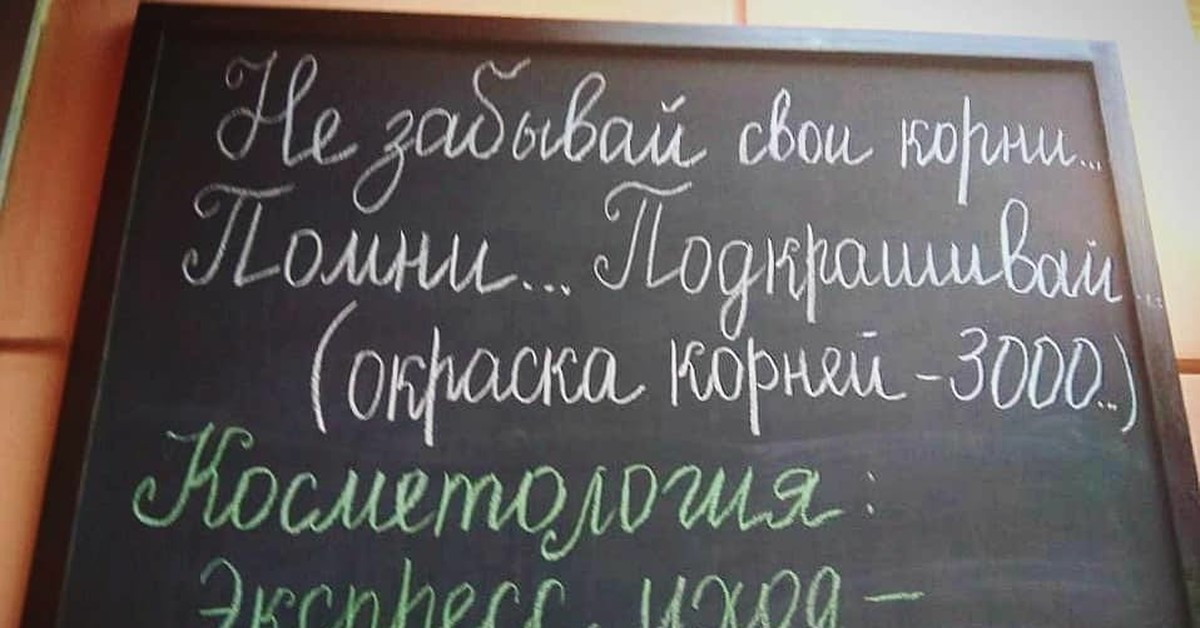 Не забывай свои корни...
Помни... Подкрашивай...
(окраска корней -3000..)
Косметология:
Экспресс. уход -